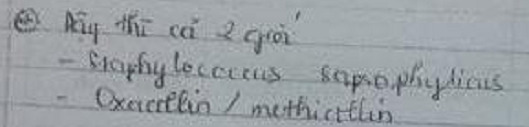 ⊕ Dậy thì cả 2 giới
- Staphylococcus saprophyticus
- Oxacillin / methicillin